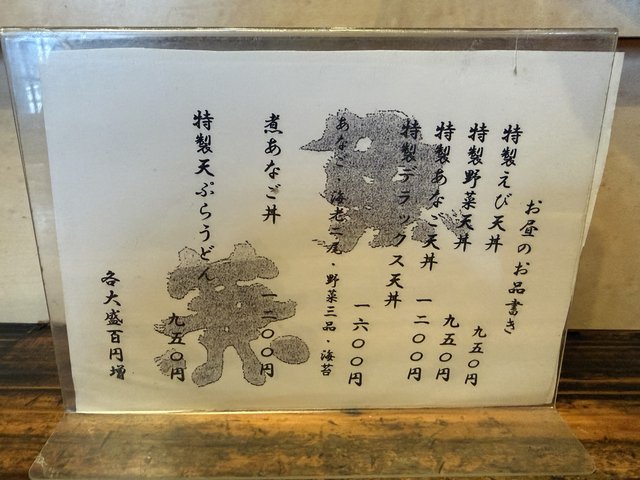 お昼のお品書き
特製えび天丼 九五〇円
特製野菜天丼 九五〇円
特製あなご天丼 一二〇〇円
特製デラックス天丼 一六〇〇円
あなご・海老二尾・野菜三品・海苔
煮あなご丼 一二〇〇円
特製天ぷらうどん 九五〇円
各大盛百円増